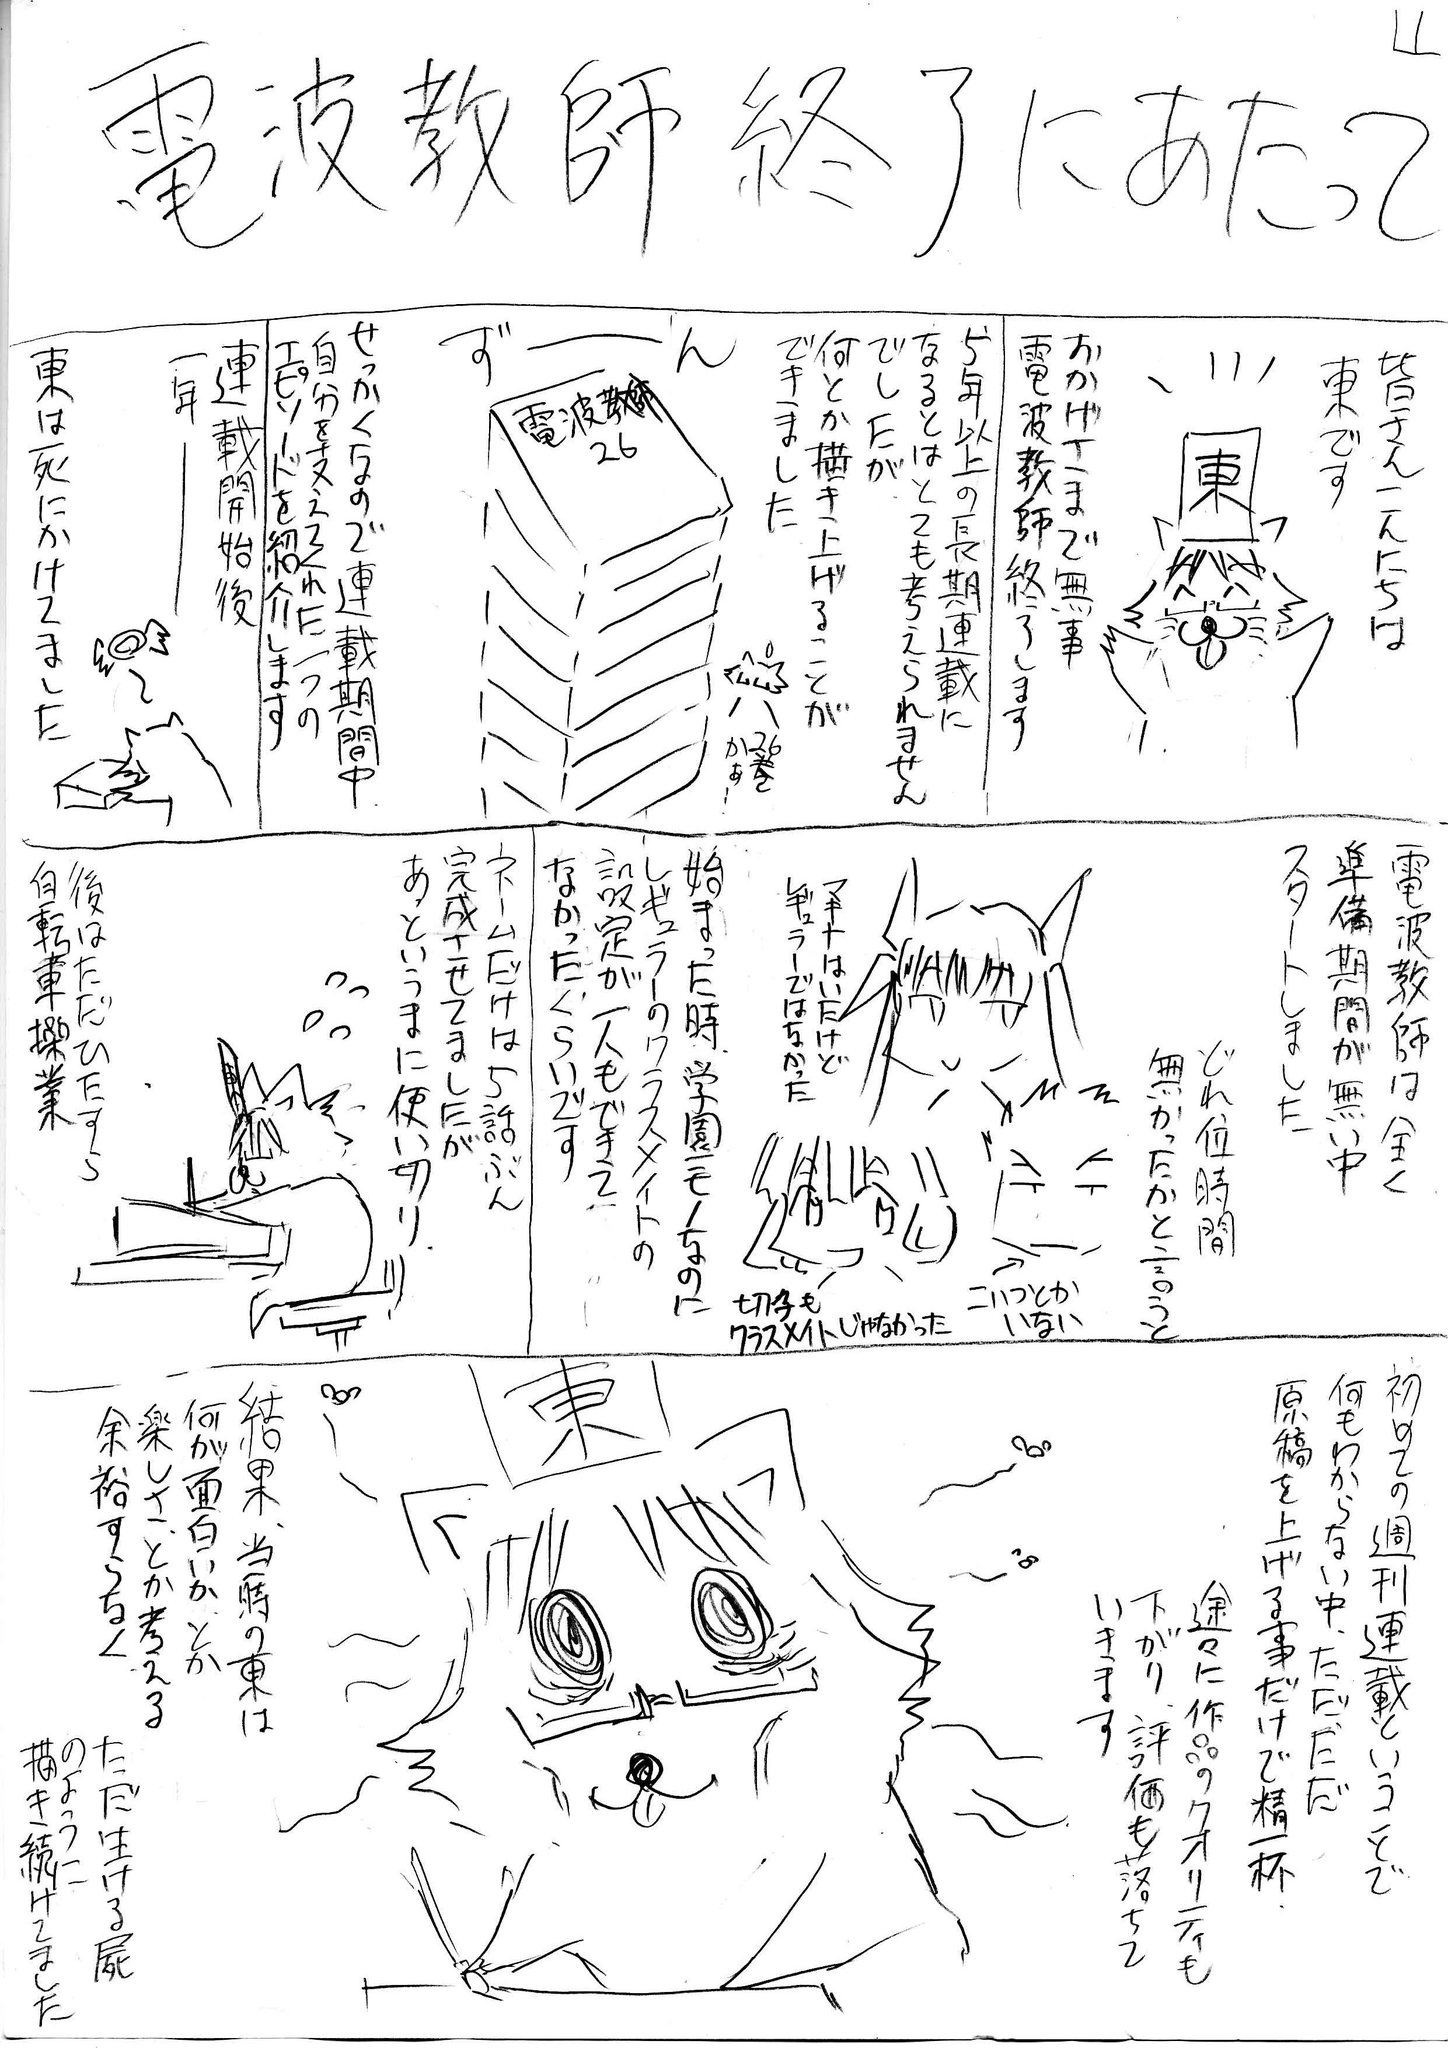 電波教師終了にあたって
皆さんこんにちは
東です
東
おかげさまで無事
電波教師終了します
5年以上の長期連載に
なるとはとても考えられません
でしたが
何とか描き上げることが
できました
26巻
かぁ…
ずーーん
電波教師
26
せっかくなので連載期間中
自分を支えてくれた一つの
エピソードを紹介します
連載開始後
一年――
東は死にかけてました
電波教師は全く
準備期間が無い中
スタートしました
どれ位時間
無かったかと言うと
マキナはいたけど
レギュラーではなかった
こいつとか
いない
切子も
クラスメイトじゃなかった
始まった時、学園モノなのに
レギュラーのクラスメイトの
設定が一人もできて
なかったぐらいです
ネームだけは5話ぶん
完成させてましたが
あっというまに使い切り、
後はただひたすら
自転車操業
初めての週刊連載ということで
何もわからない中、ただただ
原稿を上げる事だけで精一杯、
途々に作品のクオリティも
下がり、評価も落ちて
いきます
東
結果、当時の東は
何が面白いか、とか
楽しさ、とか考える
余裕すらなく
ただ生ける屍
のように
描き続けてました